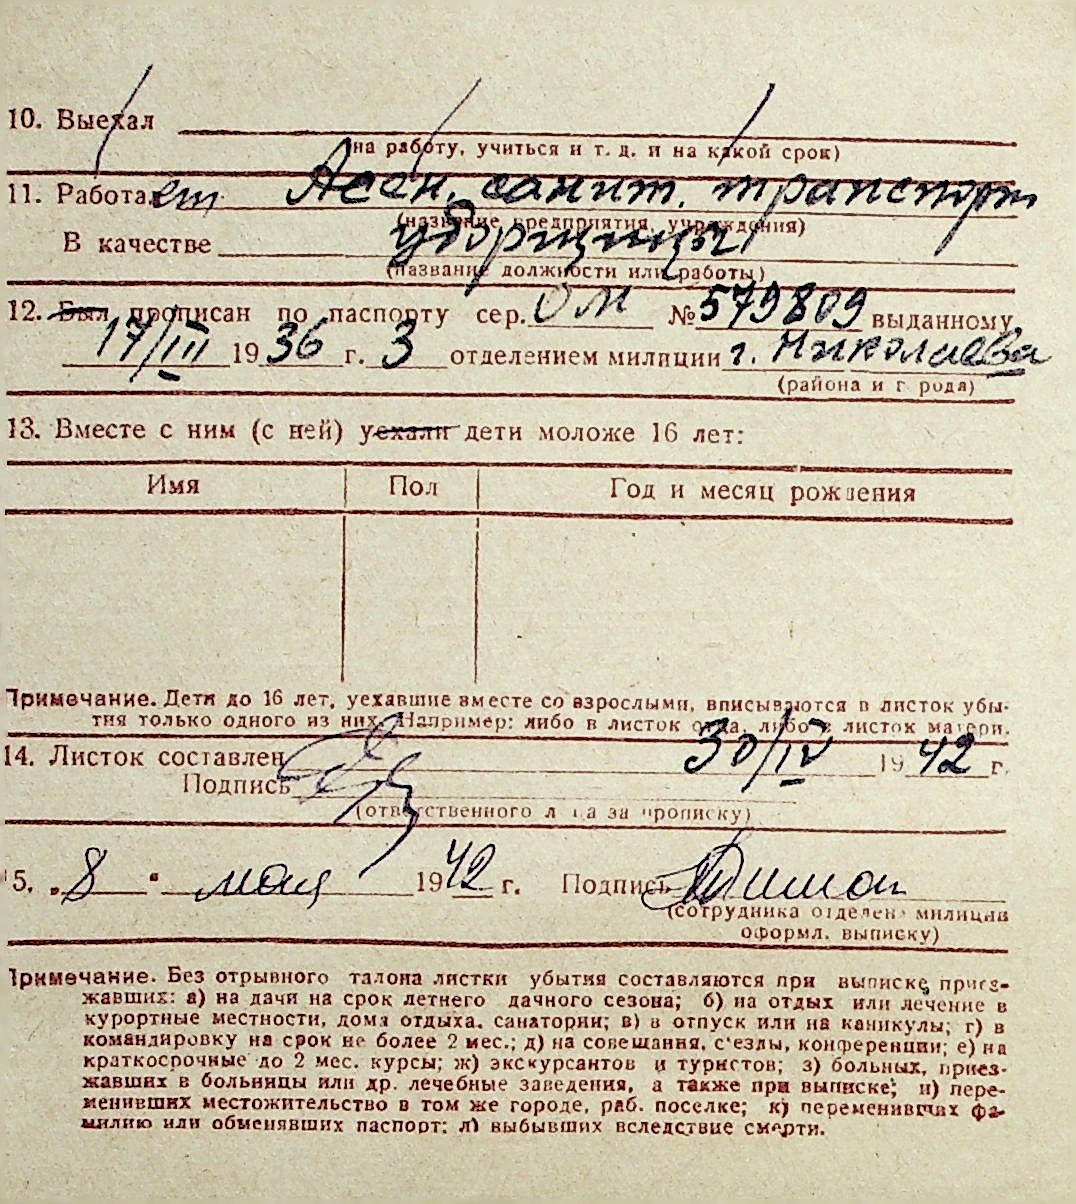 10. Выехал
(на работу, учиться и т. д. и на какой срок)
11. Работает Асен. санит. транспорт
(название предприятия, учреждения)
В качестве уборщицы
(название должности или работы)
12. Был прописан по паспорту сер. ОМ № 579809 выданному
17/III 1936 г. 3 отделением милиции г. Николаева
(района и г рода)
13. Вместе с ним (с ней) уехали дети моложе 16 лет:
Имя Пол Год и месяц рождения
Примечание. Дети до 16 лет, уехавшие вместе со взрослыми, вписываются в листок убы-
тия только одного из них. Например: либо в листок отца, либо в листок матери.
14. Листок составлен 30/IV 1942 г.
Подпись
(ответственного лица за прописку)
15. „8“ мая 1942 г. Подпись
(сотрудника отделен. милиции
оформл. выписку)
Примечание. Без отрывного талона листки убытия составляются при выписке приез-
жавших: а) на дачи на срок летнего дачного сезона; б) на отдых или лечение в
курортные местности, дома отдыха, санатории; в) в отпуск или на каникулы; г) в
командировку на срок не более 2 мес.; д) на совещания, с'езды, конференции; е) на
краткосрочные до 2 мес. курсы; ж) экскурсантов и туристов; з) больных, приез-
жавших в больницы или др. лечебные заведения, а также при выписке; и) пере-
менивших местожительство в том же городе, раб. поселке; к) переменивших фа-
милию или обменявших паспорт; л) выбывших вследствие смерти.